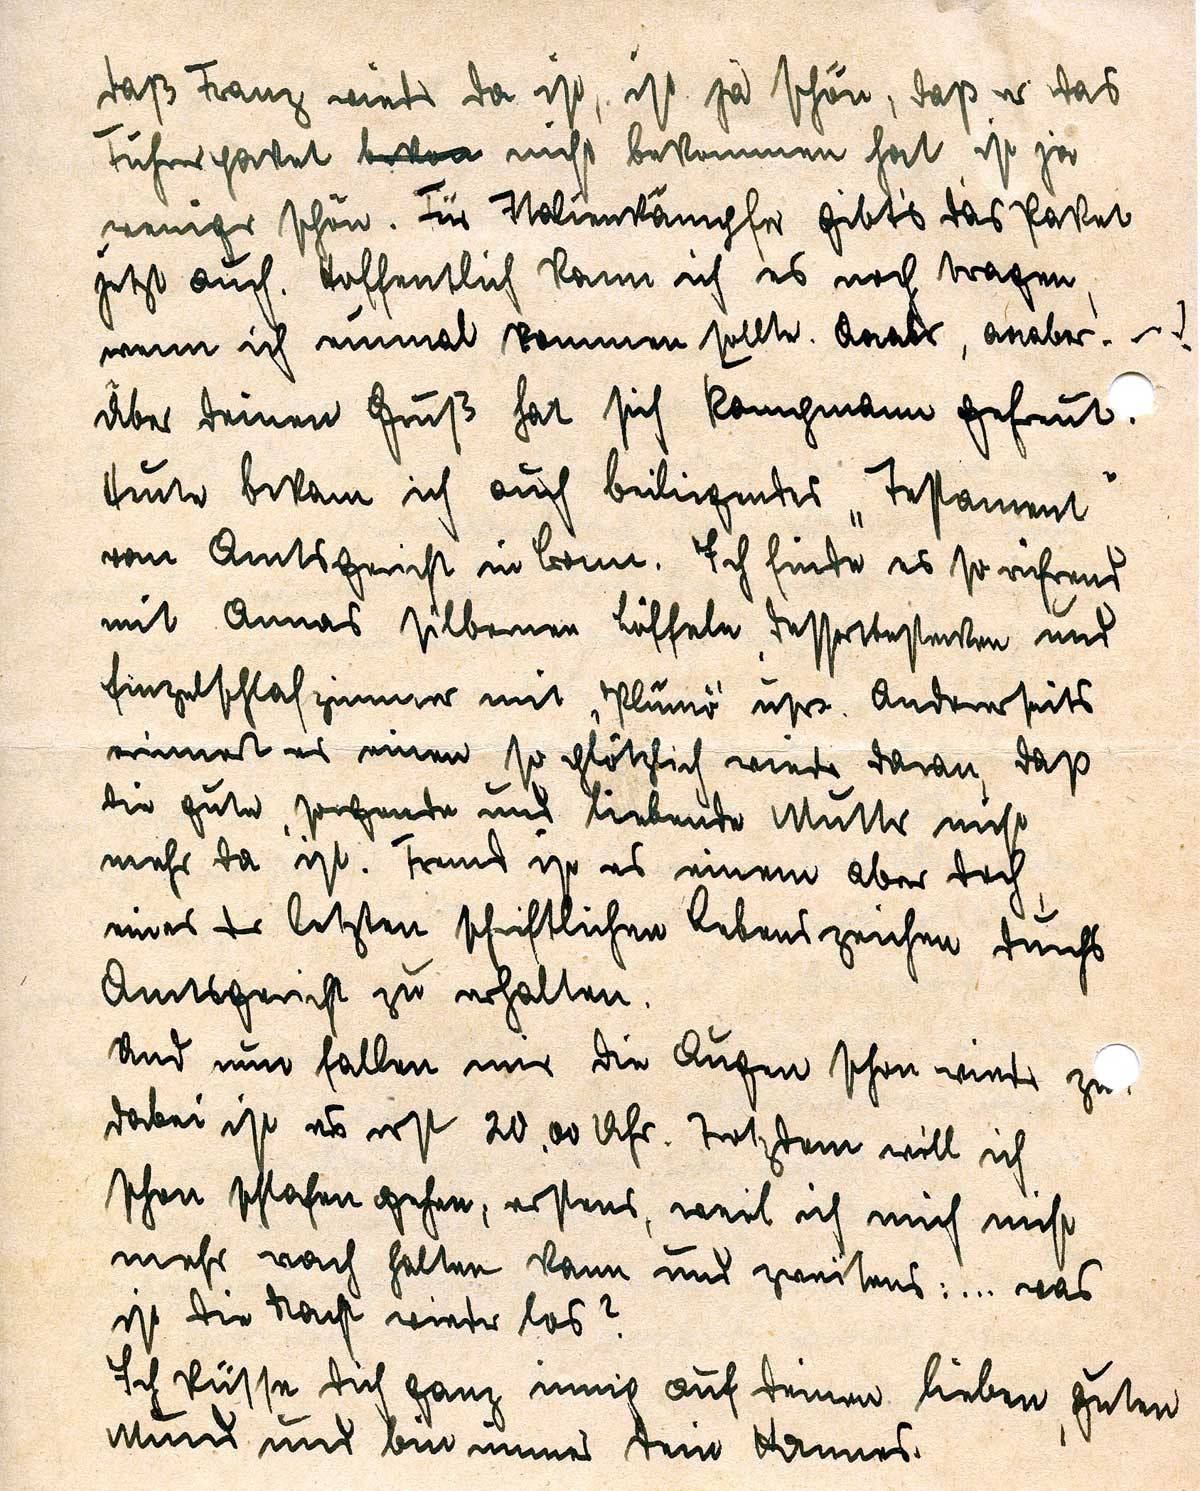 daß Franz wieder da ist, ist ja schön, daß er das
Führerpaket bekon nicht bekommen hat ist ja
weniger schön. Für Italienkämpfer gibt's das Paket
jetzt auch. Hoffentlich kann ich es noch tragen,
wenn ich einmal kommen sollte. Aaaber, aaaber. – !
Über deinen Gruß hat sich Kampmann gefreut.
Heute bekam ich auch beiliegendes „Testament"
vom Amtsgericht in Bonn. Ich finde es so rührend
mit Annas silbernen Löffeln, Dessertbestecken und
Einzelschlafzimmer mit „Plümo" usw. Andererseits
erinnert es einen so plötzlich wieder daran, daß
die gute, sorgende und liebende Mutter nicht
mehr da ist. Fremd ist es einem aber doch,
eines der letzten schriftlichen Lebenszeichen durchs
Amtsgericht zu erhalten.
Und nun fallen mir die Augen schon wieder zu.
dabei ist es erst 20,00 Uhr. Trotzdem will ich
schon schlafen gehen, erstens, weil ich mich nicht
mehr wach halten kann und zweitens: ... was
ist die Nacht wieder los?
Ich küsse dich ganz innig auf deinen lieben, guten
Mund und bin immer dein Hannes.